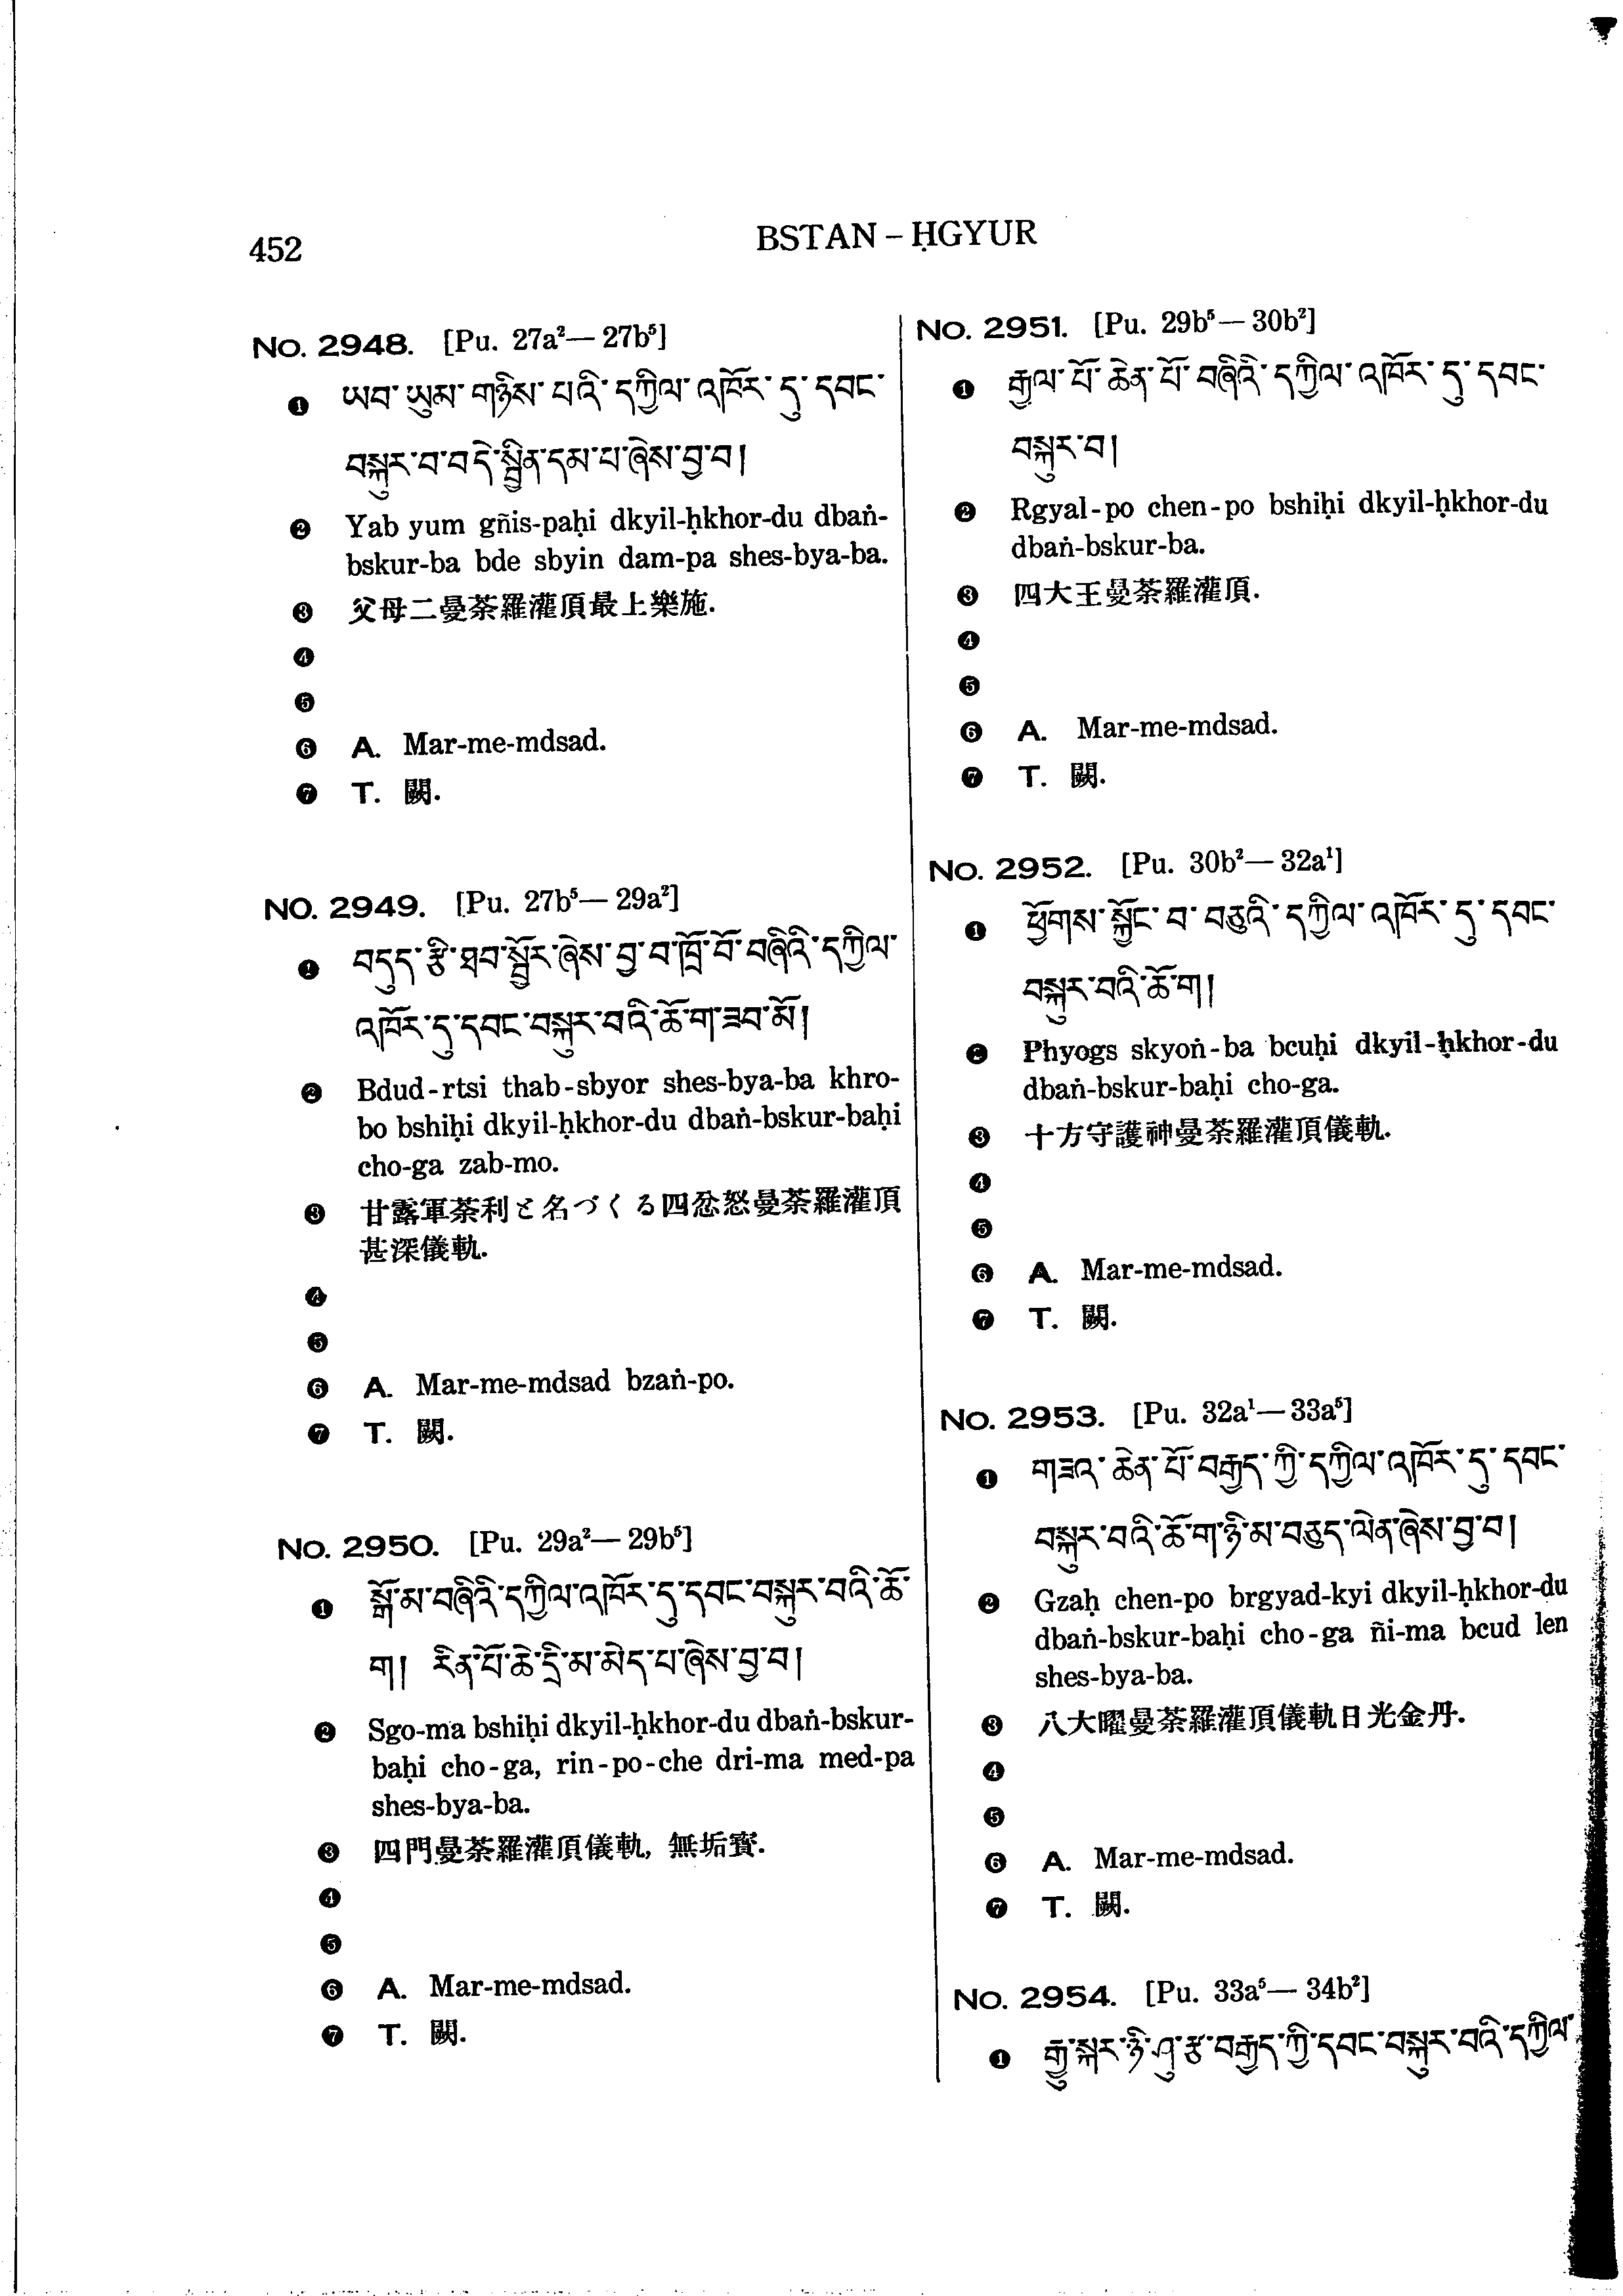 452
BSTAN – ḤGYUR
No. 2948. [Pu. 27a²— 27b⁵]
❶ ཡབ་ ཡུམ་ གཉིས་ པའི་ དཀྱིལ་ འཁོར་ དུ་ དབང་
བསྐུར་བ་བདེ་སྦྱིན་དམ་པ་ཞེས་བྱ་བ།
❷ Yab yum gñis-paḥi dkyil-ḥkhor-du dbaṅ-
bskur-ba bde sbyin dam-pa shes-bya-ba.
❸ 父母二曼荼羅灌頂最上樂施.
❹
❺
❻ A. Mar-me-mdsad.
❼ T. 闕.
NO. 2949. [Pu. 27b⁵— 29a²]
❶ བདུད་རྩི་ཐབ་སྦྱོར་ཞེས་བྱ་བ་ཁྲོ་བོ་བཞིའི་དཀྱིལ་
འཁོར་དུ་དབང་བསྐུར་བའི་ཆོ་ག་ཟབ་མོ།
❷ Bdud-rtsi thab-sbyor shes-bya-ba khro-
bo bshiḥi dkyil-ḥkhor-du dbaṅ-bskur-baḥi
cho-ga zab-mo.
❸ 甘露軍荼利と名づくる四忿怒曼荼羅灌頂
甚深儀軌.
❹
❺
❻ A. Mar-me-mdsad bzaṅ-po.
❼ T. 闕.
No. 2950. [Pu. 29a²— 29b⁵]
❶ སྒོ་མ་བཞིའི་དཀྱིལ་འཁོར་དུ་དབང་བསྐུར་བའི་ཆོ་
ག། རིན་པོ་ཆེ་དྲི་མ་མེད་པ་ཞེས་བྱ་བ།
❷ Sgo-ma bshiḥi dkyil-ḥkhor-du dbaṅ-bskur-
baḥi cho-ga, rin-po-che dri-ma med-pa
shes-bya-ba.
❸ 四門曼荼羅灌頂儀軌, 無垢寳.
❹
❺
❻ A. Mar-me-mdsad.
❼ T. 闕.
No. 2951. [Pu. 29b⁵— 30b²]
❶ རྒྱལ་ པོ་ ཆེན་ པོ་ བཞིའི་ དཀྱིལ་ འཁོར་ དུ་ དབང་
བསྐུར་བ།
❷ Rgyal-po chen-po bshiḥi dkyil-ḥkhor-du
dbaṅ-bskur-ba.
❸ 四大王曼荼羅灌頂.
❹
❺
❻ A. Mar-me-mdsad.
❼ T. 闕.
No. 2952. [Pu. 30b²— 32a¹]
❶ ཕྱོགས་ སྐྱོང་ བ་ བཅུའི་ དཀྱིལ་ འཁོར་ དུ་ དབང་
བསྐུར་བའི་ཆོ་ག།
❷ Phyogs skyoṅ-ba bcuḥi dkyil-ḥkhor-du
dbaṅ-bskur-baḥi cho-ga.
❸ 十方守護神曼荼羅灌頂儀軌.
❹
❺
❻ A. Mar-me-mdsad.
❼ T. 闕.
No. 2953. [Pu. 32a¹—33a⁵]
❶ གཟའ་ ཆེན་ པོ་ བརྒྱད་ ཀྱི་ དཀྱིལ་ འཁོར་ དུ་ དབང་
བསྐུར་བའི་ཆོ་ག་ཉི་མ་བཅུད་ལེན་ཞེས་བྱ་བ།
❷ Gzaḥ chen-po brgyad-kyi dkyil-ḥkhor-du
dbaṅ-bskur-baḥi cho-ga ñi-ma bcud len
shes-bya-ba.
❸ 八大曜曼荼羅灌頂儀軌日光金丹.
❹
❺
❻ A. Mar-me-mdsad.
❼ T. 闕.
No. 2954. [Pu. 33a⁵— 34b²]
❶ རྒྱུ་སྐར་ཉི་ཤུ་རྩ་བརྒྱད་ཀྱི་དབང་བསྐུར་བའི་དཀྱིལ་